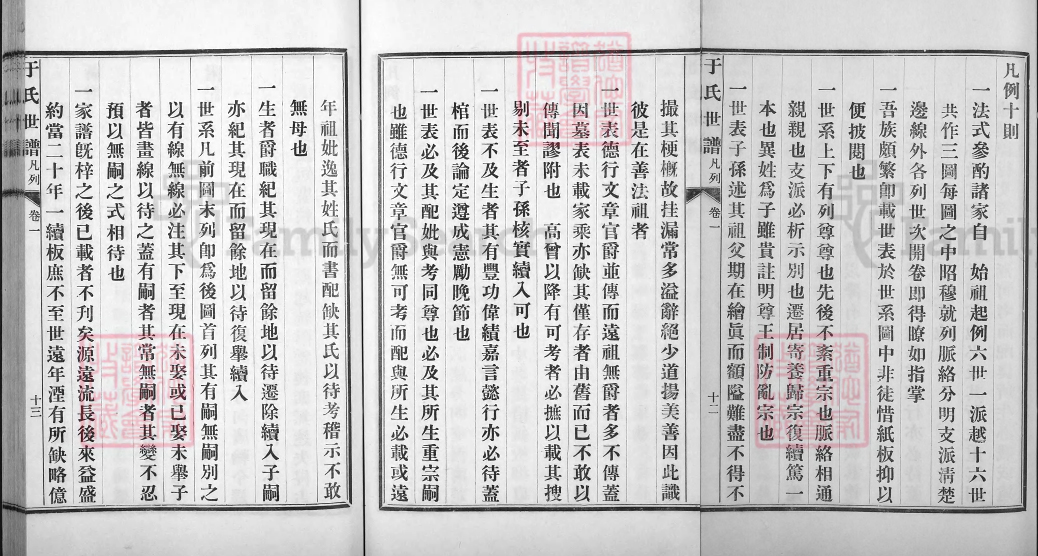 凡例十則
一法式參酌諸家自　始祖起例六世一派越十六世
共作三圖每圖之中昭穆就列脈絡分明支派清楚
邊線外各列世次開卷即得瞭如指掌
一吾族頗繁卽載世表於世系圖中非徒惜紙板抑以
便披閱也
一世系上下有列尊尊也先後不紊重宗也脈絡相通
親親也支派必析示別也遷居寄養歸宗復續篤一
本也異姓爲子雖貴註明尊王制防亂宗也
一世表子孫述其祖父期在繪眞而額隘難盡不得不
于氏世譜 凡例 卷一 十二
撮其梗槪故挂漏常多溢辭絕少道揚美善因此識
彼是在善法祖者
一世表德行文章官爵並傳而遠祖無爵者多不傳蓋
因墓表未載家乘亦缺其僅存者由舊而已不敢以
傳聞謬附也　高曾以降有可考者必摭以載其搜
剔未至者子孫核實續入可也
一世表不及生者其有豐功偉績嘉言懿行亦必待蓋
棺而後論定遵成憲勵晚節也
一世表必及其配妣與考同尊也必及其所生重宗嗣
也雖德行文章官爵無可考而配與所生必載或遠
年祖妣逸其姓氏而書配缺其氏以待考稽示不敢
無母也
一生者爵職紀其現在而留餘地以待遷除續入子嗣
亦紀其現在而留餘地以待復舉續入
一世系凡前圖末列卽爲後圖首列其有嗣無嗣別之
以有線無線必注其下至現在未娶或已娶未舉子
者皆畫線以待之蓋有嗣者其常無嗣者其變不忍
預以無嗣之式相待也
一家譜旣梓之後已載者不刋矣源遠流長後來益盛
約當二十年一續板庶不至世遠年湮有所缺略億
于氏世譜 凡例 卷一 十三
FamilySearch